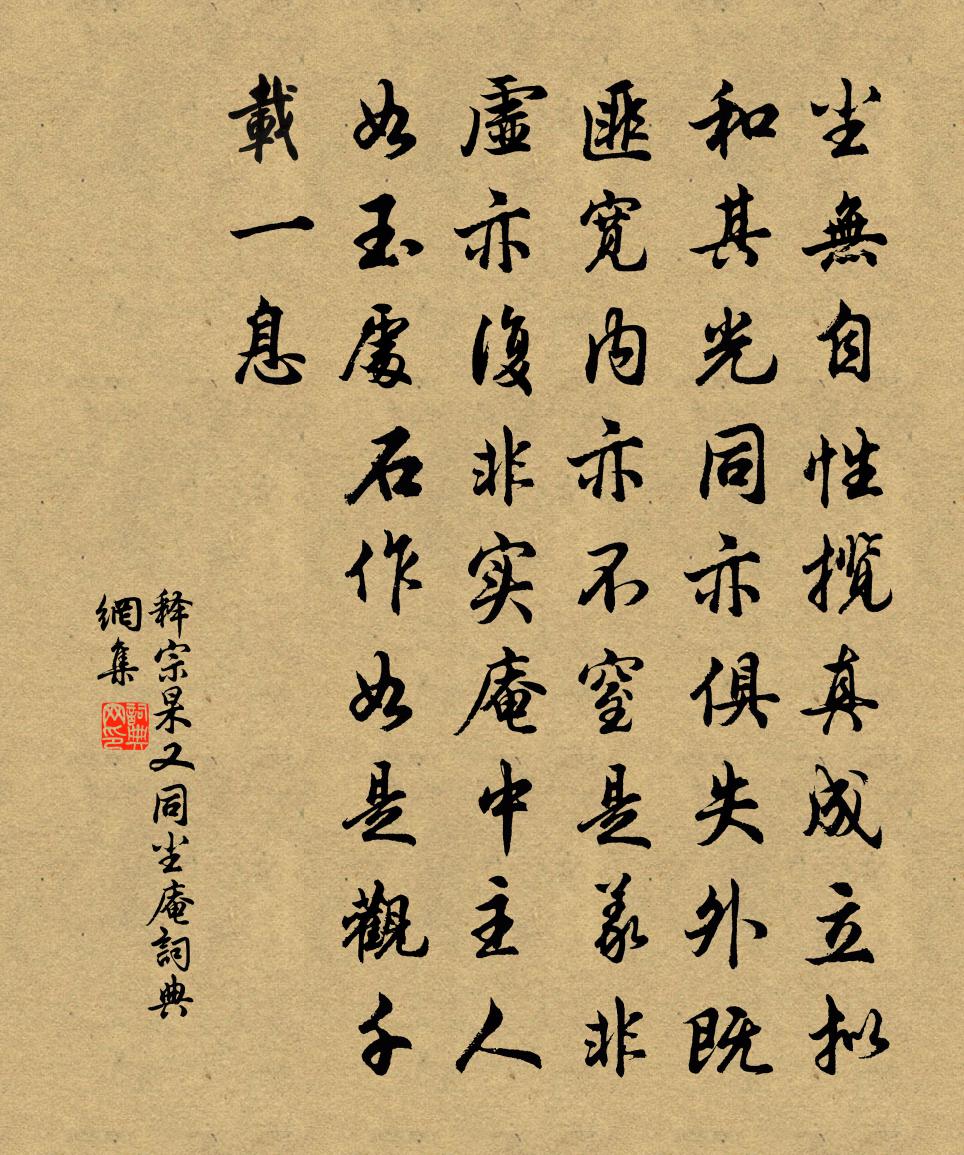 尘無自性揽真成立拟
和其光同亦俱失外既
匪宽内亦不窒是义非
虚亦復非实庵中主人
如玉處石作如是觀千
載一息
释宗杲又同尘庵詞典
網集
詞典网印